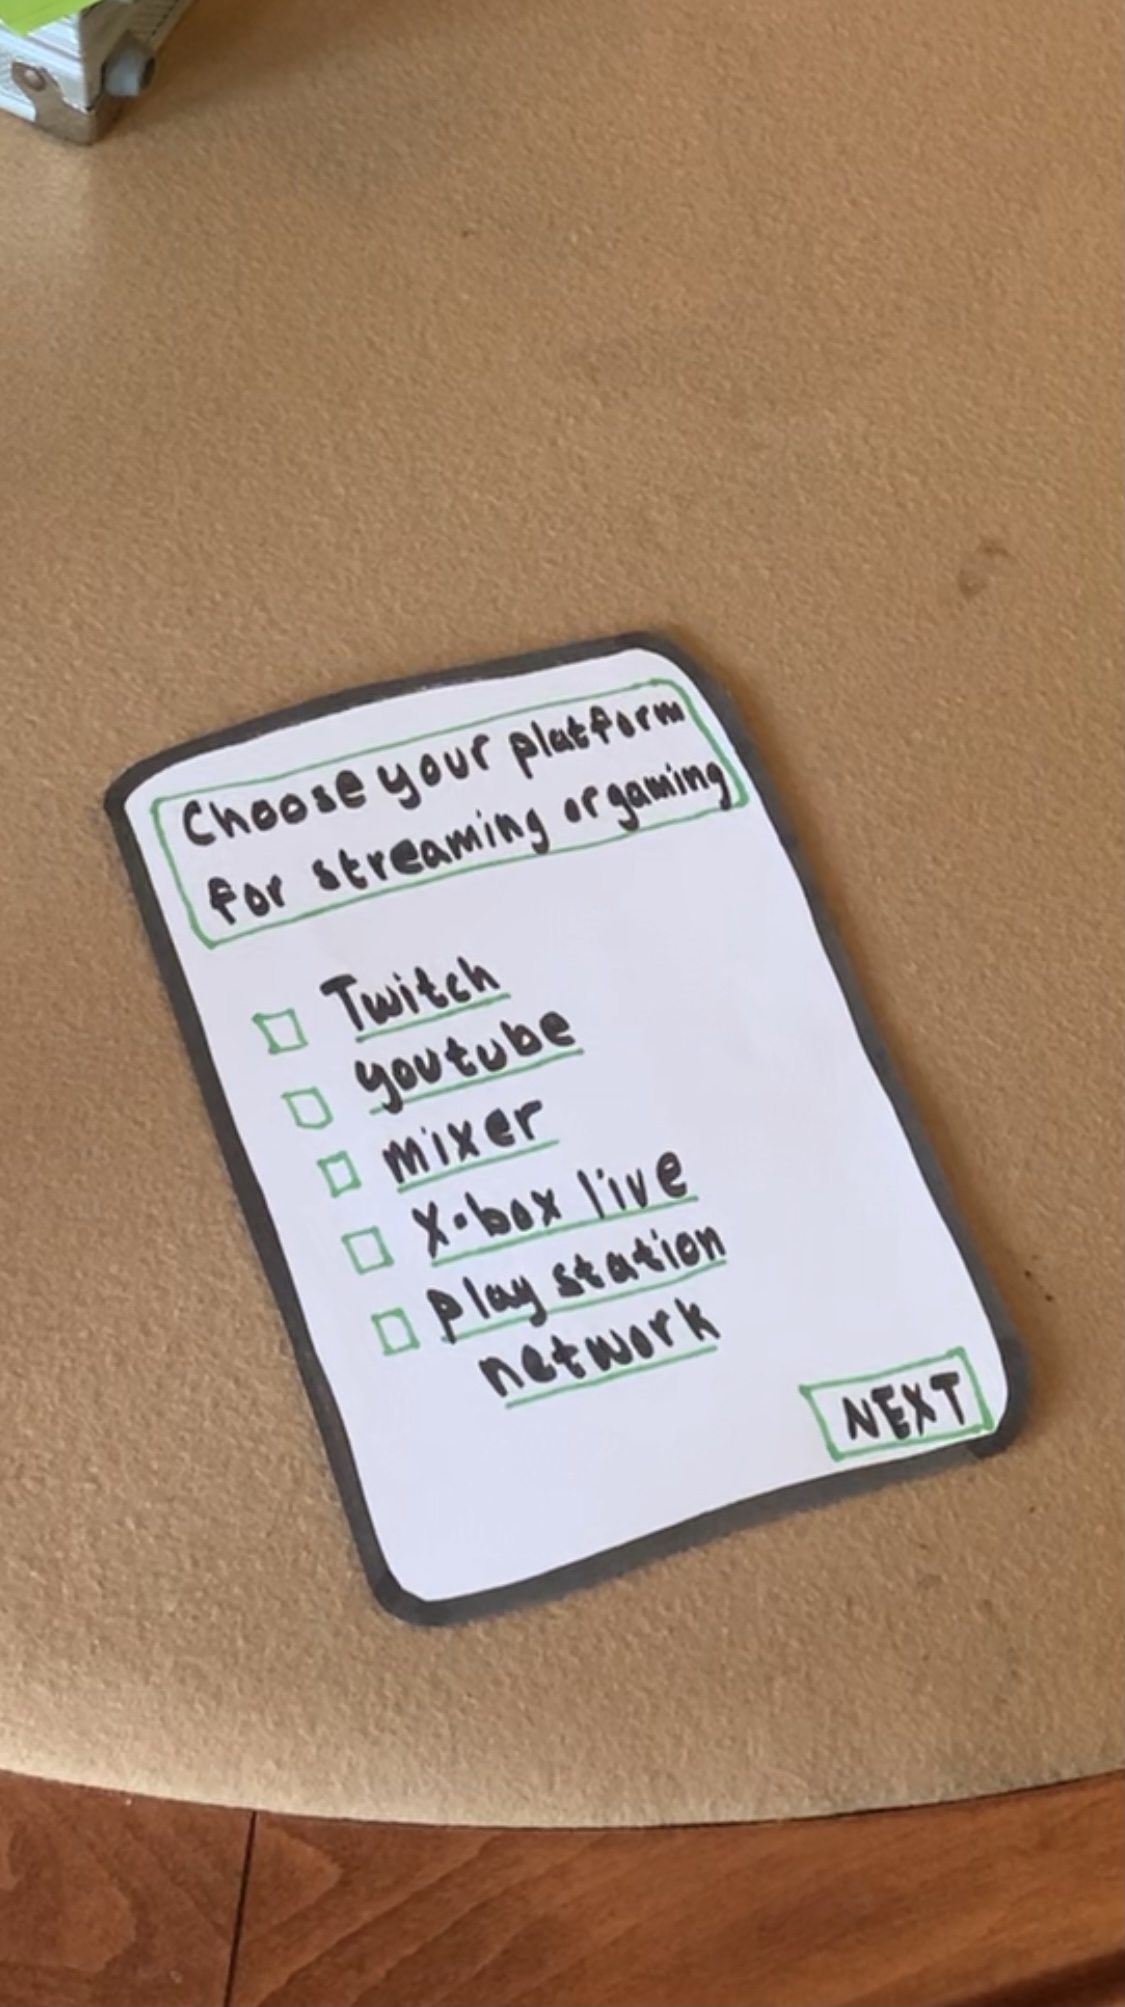 Choose your platform
for streaming or gaming
Twitch
youtube
mixer
X-box live
play station
network
NEXT